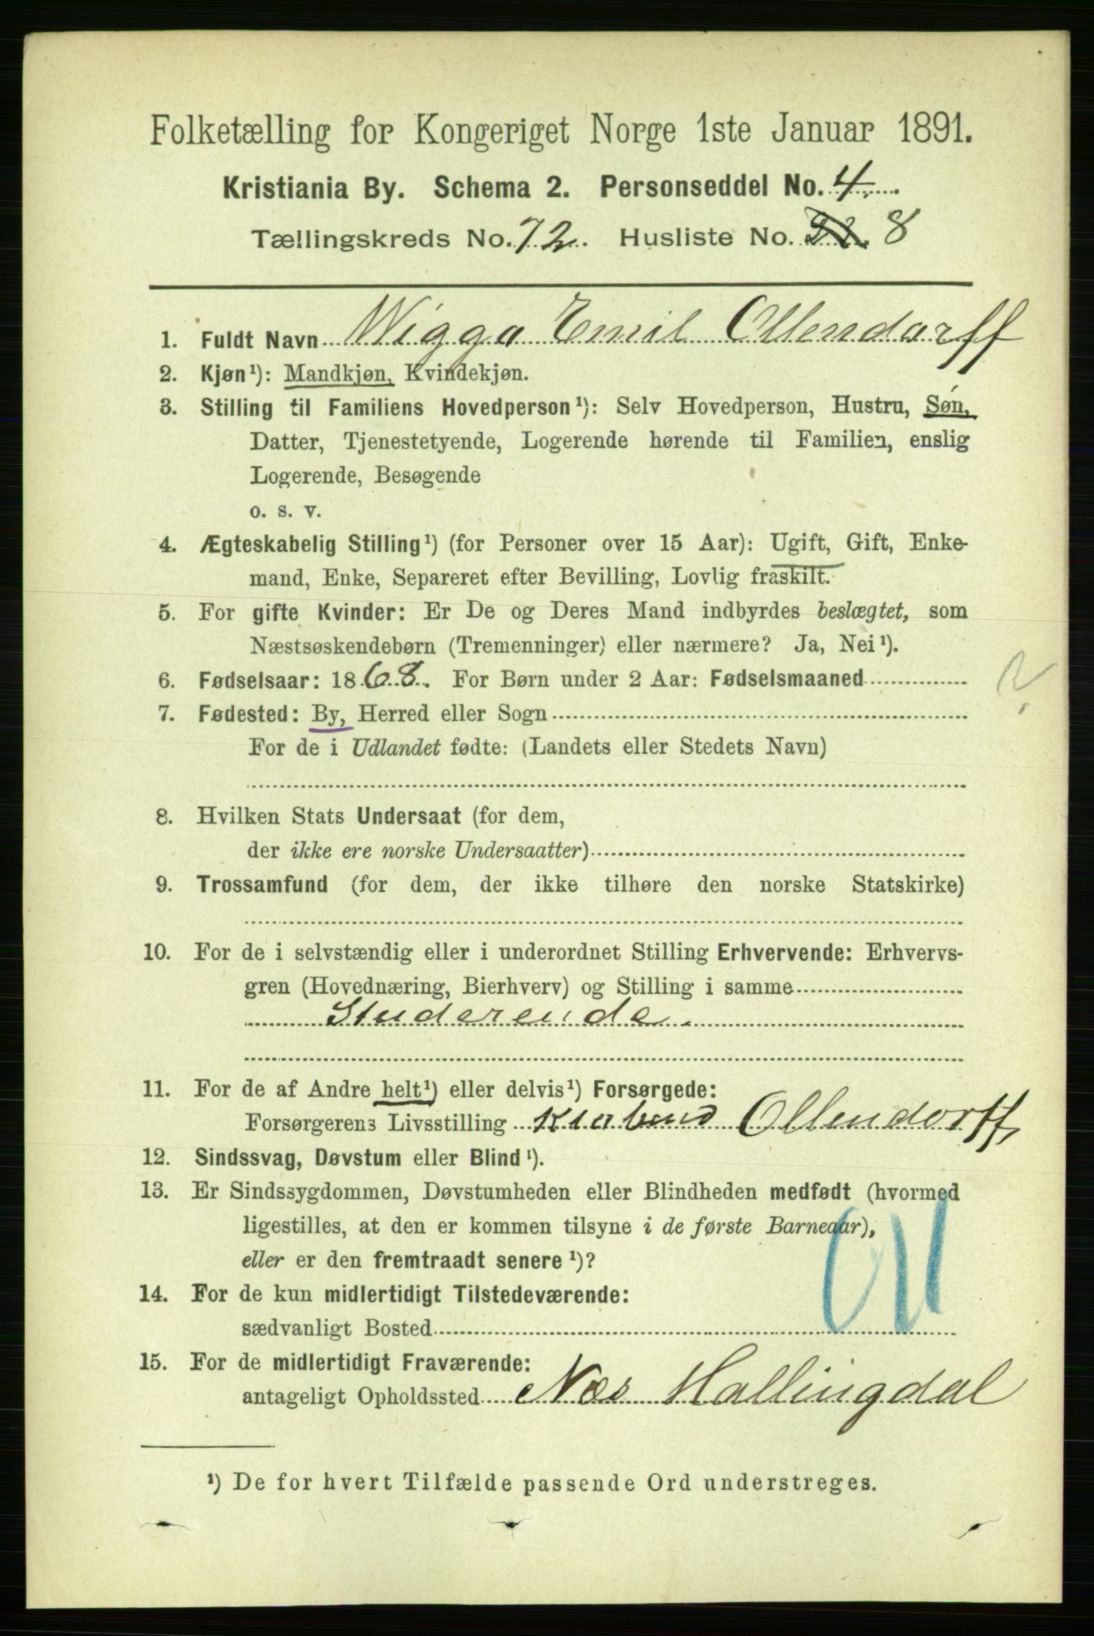 Folketælling for Kongeriget Norge 1ste Januar 1891.
Kristiania By. Schema 2. Personseddel No. 4.
Tællingskreds No. 72. Husliste No. 8
1. Fuldt Navn Wiggo Emil Ollendorff
2. Kjøn¹): Mandkjøn, Kvindekjøn.
3. Stilling til Familiens Hovedperson¹): Selv Hovedperson, Hustru, Søn,
Datter, Tjenestetyende, Logerende hørende til Familien, enslig
Logerende, Besøgende
o. s. v.
4. Ægteskabelig Stilling¹) (for Personer over 15 Aar): Ugift, Gift, Enke-
mand, Enke, Separeret efter Bevilling, Lovlig fraskilt.
5. For gifte Kvinder: Er De og Deres Mand indbyrdes beslægtet, som
Næstsøskendebørn (Tremenninger) eller nærmere? Ja, Nei¹).
6. Fødselsaar: 1868. For Børn under 2 Aar: Fødselsmaaned
?
7. Fødested: By, Herred eller Sogn
For de i Udlandet fødte: (Landets eller Stedets Navn)
8. Hvilken Stats Undersaat (for dem,
der ikke ere norske Undersaatter)
9. Trossamfund (for dem, der ikke tilhøre den norske Statskirke)
10. For de i selvstændig eller i underordnet Stilling Erhvervende: Erhvervs-
gren (Hovednæring, Bierhverv) og Stilling i samme
Studerende.
11. For de af Andre helt¹) eller delvis¹) Forsørgede:
Forsørgerens Livsstilling Ollendorff
12. Sindssvag, Døvstum eller Blind¹).
13. Er Sindssygdommen, Døvstumheden eller Blindheden medfødt (hvormed
ligestilles, at den er kommen tilsyne i de første Barneaar),
eller er den fremtraadt senere¹)?
14. For de kun midlertidigt Tilstedeværende:
sædvanligt Bosted
15. For de midlertidigt Fraværende:
antageligt Opholdssted Næs Hallingdal
¹) De for hvert Tilfælde passende Ord understreges.